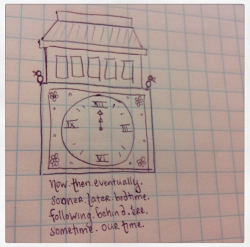 XII
IX III
VI
Now. then. eventually.
sooner. later. bedtime.
following. behind.
sometime. our time.